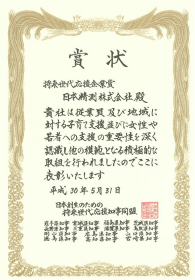 賞状
将来世代応援企業賞
日本精測株式会社 殿
貴社は従業員及び地域に
対する子育て支援並びに女性や
若者への支援の重要性を深く
認識し他の模範となる積極的な
取組を行われましたのでここに
表彰いたします
平成30年5月31日
日本創生のための
将来世代応援知事同盟